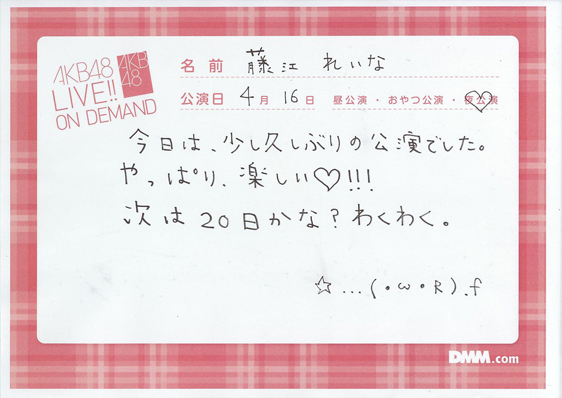 AKB48
LIVE!!
ON DEMAND
AKB
48
名前 藤江 れいな
公演日 4月 16日 昼公演・おやつ公演・夜公演
今日は、少し久しぶりの公演でした。
やっぱり、楽しい♡!!!
次は20日かな?わくわく。
☆...(・ω・R).f
DMM.com